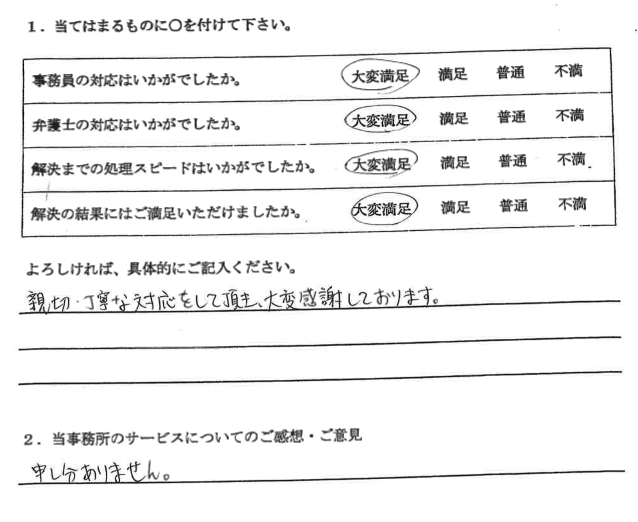 1．当てはまるものに○を付けて下さい。
事務員の対応はいかがでしたか。 大変満足 満足 普通 不満
弁護士の対応はいかがでしたか。 大変満足 満足 普通 不満
解決までの処理スピードはいかがでしたか。 大変満足 満足 普通 不満
解決の結果にはご満足いただけましたか。 大変満足 満足 普通 不満
よろしければ、具体的にご記入ください。
親切・丁寧な対応をして頂き、大変感謝しております。
2．当事務所のサービスについてのご感想・ご意見
申し分ありません。